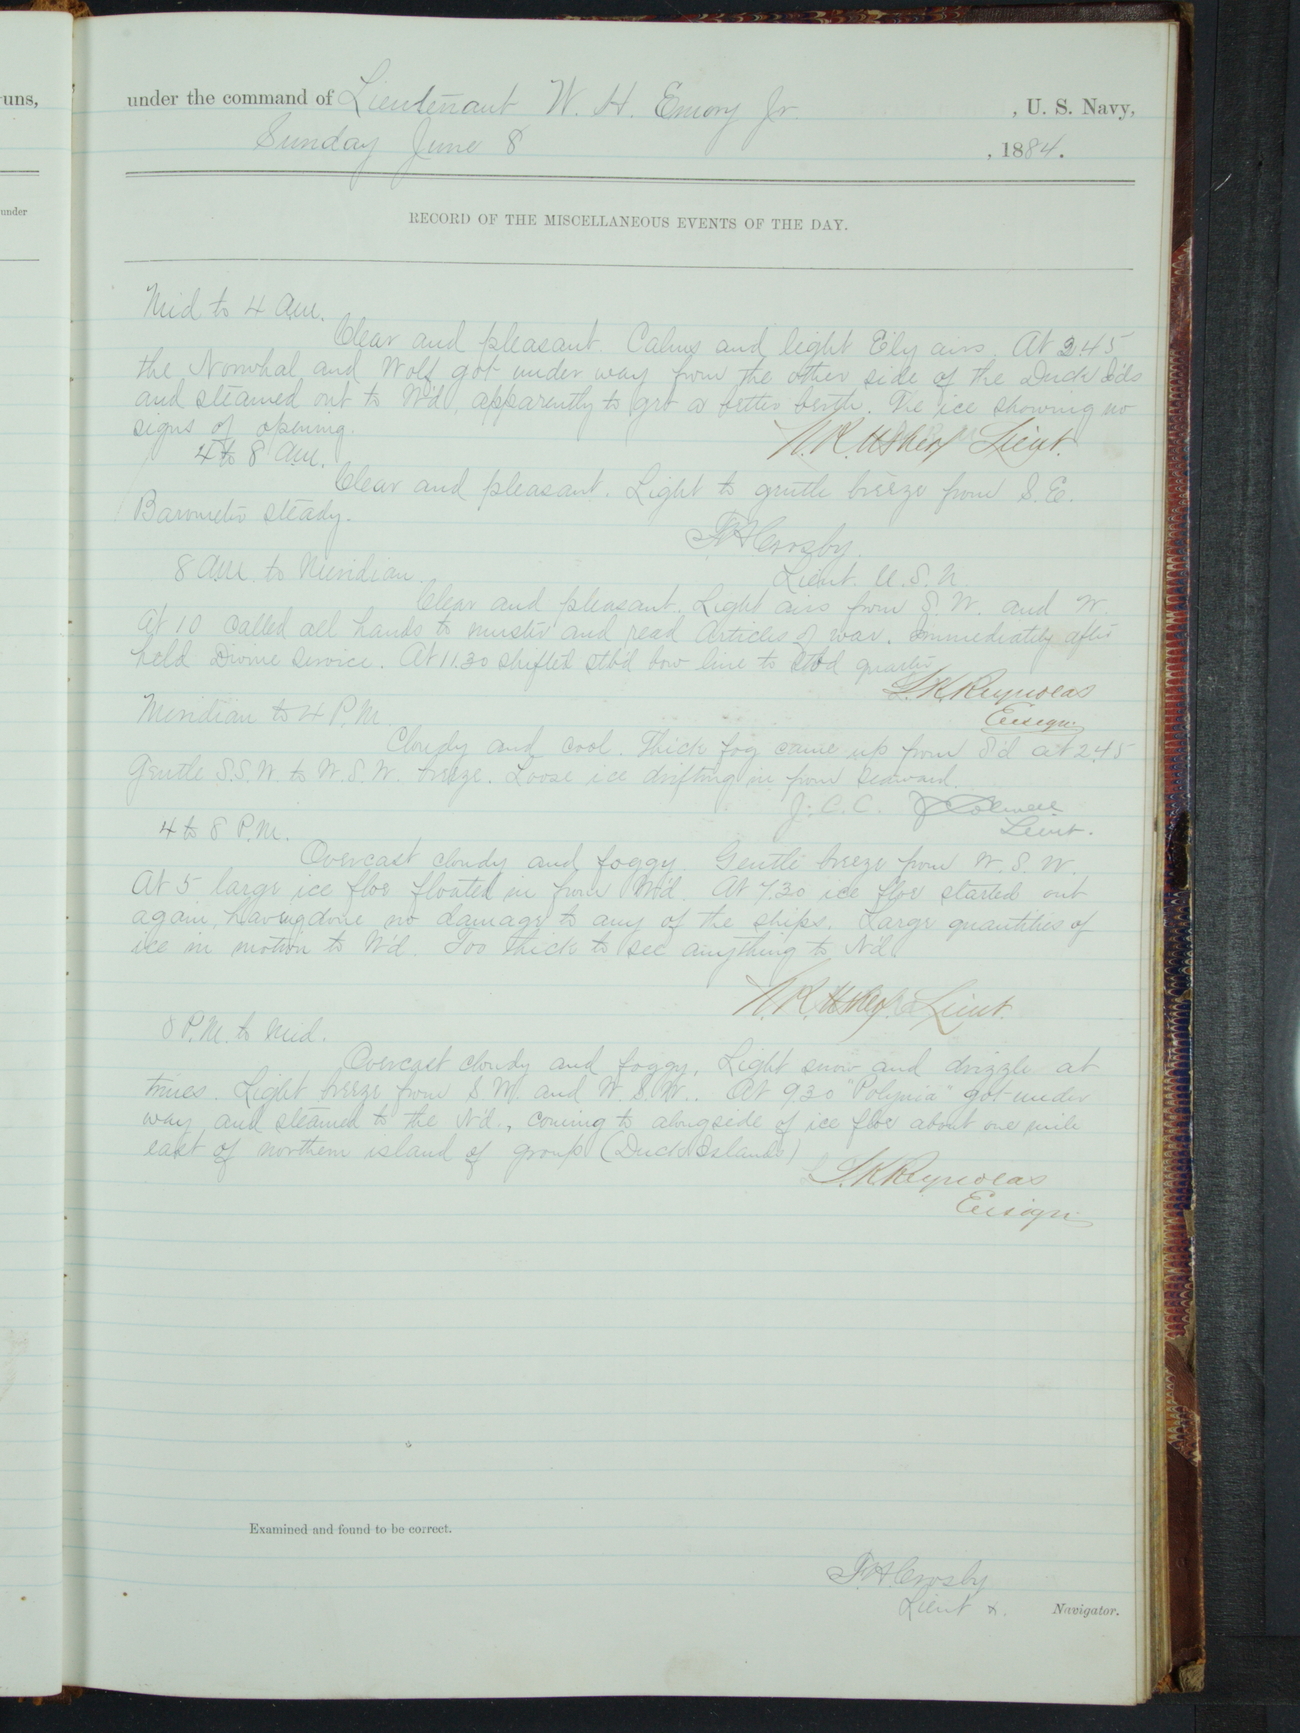 uns,
under
under the command of Lieutenant W. H. Emory Jr , U. S. Navy,
Sunday June 8 , 1884.
RECORD OF THE MISCELLANEOUS EVENTS OF THE DAY.
Mid to 4 a.m.
Clear and pleasant. Calms and light E'ly airs. At 2.45
the Narwhal and Wolf got under way from the other side of the Duck Ids
and steamed out to W'd, apparently to get a better berth. The ice showing no
signs of opening.
N. R. Usher Lieut.
4 to 8 a.m.
Clear and pleasant. Light to gentle breeze from S.E.
Barometer steady.
F H Crosby.
Lieut. U.S.N.
8 a.m. to Meridian.
Clear and pleasant. Light airs from S. W. and W.
At 10 called all hands to muster and read Articles of war. Immediately after
held Divine Service. At 11.30 shifted stb'd bow line to stbd quarter
L. K. Reynolds
Ensign.
Meridian to 4 P.M.
Cloudy and cool. Thick fog came up from S'd at 2.45
Gentle S.S.W. to W.S.W. breeze. Loose ice drifting in from seaward.
J. C. C. Colwell
Lieut.
4 to 8 P.M.
Overcast cloudy and foggy. Gentle breeze from W. S. W.
At 5 large ice floe floated in from W'd. At 7.30 ice floe started out
again, having done no damage to any of the ships. Large quantities of
ice in motion to W'd. Too thick to see anything to N'd.
N. R. Usher Lieut.
8 P.M. to Mid.
Overcast cloudy and foggy. Light snow and drizzle at
times. Light breeze from S.W. and W.S.W.. At 9.30 "Polynia" got under
way and steamed to the N'd., coming to alongside of ice floe about one mile
east of northern island of group (Duck Islands)
L. K. Reynolds
Ensign.
Examined and found to be correct.
F. H. Crosby
Lieut &. Navigator.